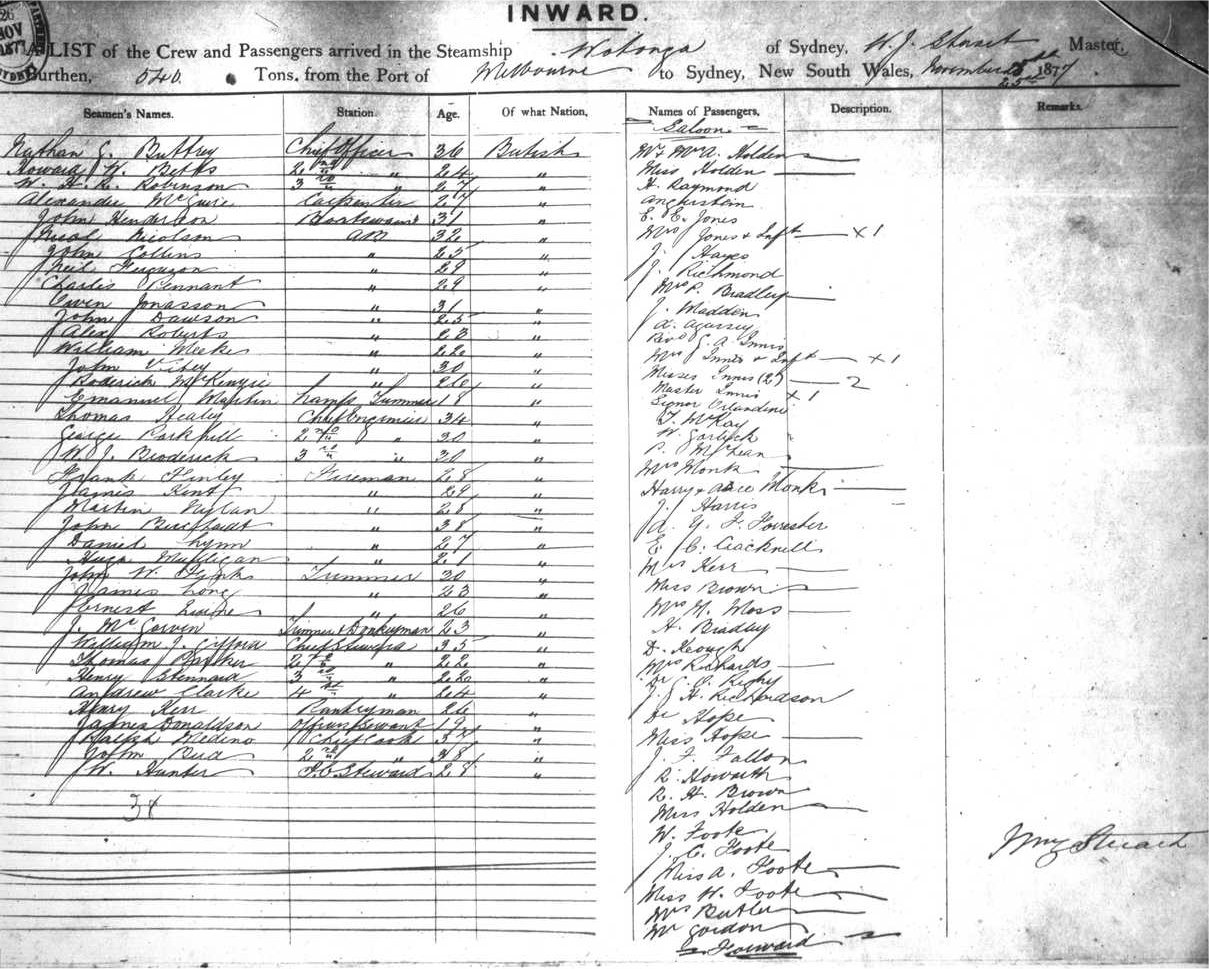 26
NOV
1877
INWARD.
A LIST of the Crew and Passengers arrived in the Steamship Wotonga of Sydney, W. J. Stuart Master,
Burthen, 540 Tons, from the Port of Melbourne to Sydney, New South Wales, November 25th 1877.
Seamen's Names. Station. Age. Of what Nation, Names of Passengers, Description. Remarks.
Saloon
Nathan G. Buttrey Chief Officer 36 British Holden
Howard W. Betts 2nd " 24 " Miss Holden
W. H. R. Robinson 3rd " 27 " H. Raymond
Alexander McGuire Carpenter 27 " Angerstein
John Henderson Boatswain 31 " E. E. Jones
Nicolson AB 32 " Mrs Jones & Inft x1
John Collins " 25 " J. Hayes
Neil Ferguson " 29 " J. Richmond
Charles Pennant " 29 " Mrs P. Bradley
Owen Jonasson " 31 " J. Madden
John Dawson " 25 "
Alex Roberts " 23 " Revd G. A. Innis
William Meeke " 22 " Mrs Innes & Inft x1
John " 30 " Misses Innis (2) 2
Roderick McKenzie " 26 " Master Innis x1
Emanuel Martin Lamps Trimmer 18 " Signor Orlandini
Thomas Healey Chief Engineer 34 " T. McKay
George Parkhill 2nd " 30 " W.
W. J. Broderick 3rd " 30 " P. McLean
Frank Finley Fireman 28 " Mrs Monk
James Kent " 29 " Harry & Alice Monk
Martin " 28 " J. Harris
John " 38 " A. G. F. Forrester
Daniel Lynn " 27 " E. C. Cracknell
Hugh Mulligan " 21 " Kerr
John W. Trimmer 30 " Miss Brown
James Long " 23 " Mrs M. Moss
Ernest " 26 " H. Bradley
J. McGorvin Trimmer & Donkeyman 23 " D. Keough
William J. Gifford Chief Steward 35 " Mrs Richards
Thomas Parker 2nd " 22 " Dr
Henry Stennard 3rd " 22 " J. H. Richardson
Andrew Clarke 4th " 24 " Dr Hope
Henry Kerr Pantryman 26 " Miss Hope
James Donaldson Officers Servant 19 " J. F. Fallon
Ralph Medino Chief Cook 37 " R. Howarth
John Bird 2nd " 38 " R. H. Brown
W. Hunter F.C. Steward 28 " Miss Holden
38
W. Foote
J. C. Foote
Miss A. Foote
Miss H. Foote
Mrs Butler
Mr Gordon
Forward
Wm J Stuart